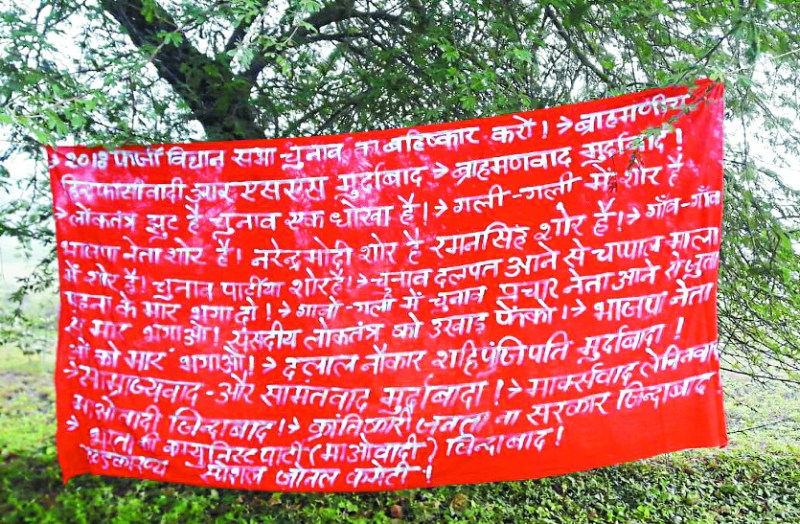 → 2018 फर्जी विधान सभा चुनाव का बहिष्कार करो! → ब्राहमणीय
हिन्दू फासीवादी आर एसएस मुर्दाबाद → ब्राहमणवाद मुर्दाबाद!
→ लोकतंत्र झुट है चुनाव एक धोखा है! → गली-गली में शोर है
भाजपा नेता शोर है! नरेन्द्र मोदी शोर है रमनसिंह शोर है! → गाँव-गाँव
में शोर है! चुनाव पार्टीया शोर है! → चुनाव दलपत आने से चप्पाल माला
पहना के मार भगा दो! → गाली-गली में चुनाव प्रचार नेता आने से जुता
से मार भगाओ! संसदीय लोकतंत्र को उखाड़ फेंको! → भाजपा नेता
ओं को मार भगाओ! → दलाल नौकार शाहि पंजिपति मुर्दाबाद!
→ साम्राज्यवाद-और सामंतवाद मुर्दाबादा! → मार्क्सवाद लेनिनवाद
माओवादी जिन्दाबाद! → क्रांतिकारी जनता ना सरकार जिन्दाबाद
→ भारत की कम्युनिस्ट पार्टी (माओवादी) जिन्दाबाद!
दण्डकारण्य स्पेशल जोनल कमेटी!